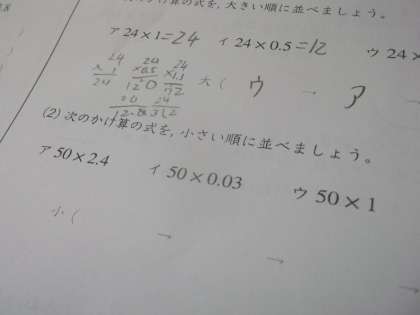 のかけ算の式を, 大きい順に並べましょう。
ア 24×1=24 イ 24×0.5=12 ウ 24×
24 24 24
×1 ×0.5 ×1.1
24 12 0
大( ウ → ア
(2) 次のかけ算の式を, 小さい順に並べましょう。
ア 50×2.4 イ 50×0.03 ウ 50×1
小( → → →